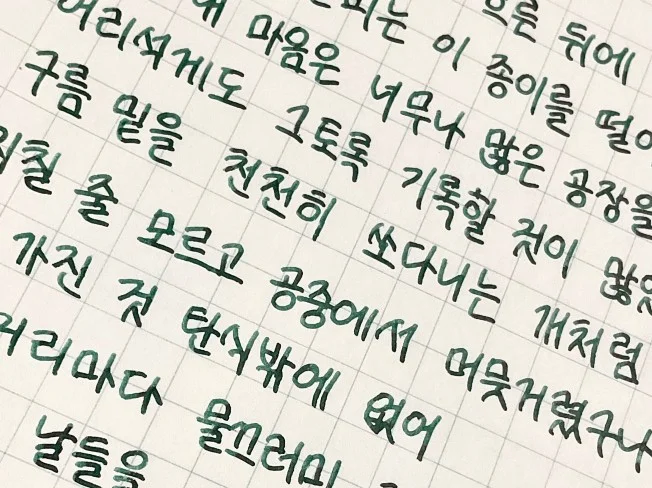 흐른 뒤에
피는 이 종이를
마음은 너무나 많은 공장을
어리석게도 그토록 기록할 것이
구름 밑을 천천히 쏘다니는 개처럼
줄 모르고 공중에서 머뭇거렸구나
가진 것 탄식밖에 없어
거리마다 물끄러미
날들을